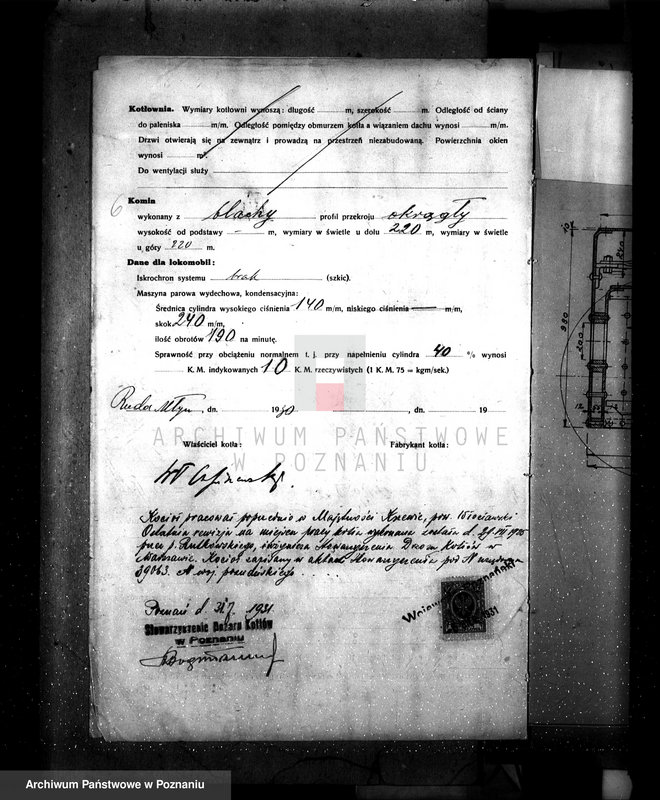 Kotłownia. Wymiary kotłowni wynoszą: długość m, szerokość m. Odległość od ściany
do paleniska m/m. Odległość pomiędzy obmurzem kotła a wiązaniem dachu wynosi m/m.
Drzwi otwierają się na zewnątrz i prowadzą na przestrzeń niezabudowaną. Powierzchnia okien
wynosi m².
Do wentylacji służy
6
Komin
wykonany z blachy profil przekroju okrągły
wysokość od podstawy - m, wymiary w świetle u dołu 220 m, wymiary w świetle
u góry 220 m.
Dane dla lokomobil:
Iskrochron systemu brak (szkic).
Maszyna parowa wydechowa, kondensacyjna:
Średnica cylindra wysokiego ciśnienia 140 m/m, niskiego ciśnienia — m/m,
skok 240 m/m,
ilość obrotów 190 na minutę.
Sprawność przy obciążeniu normalnem t. j. przy napełnieniu cylindra 40 % wynosi
K. M. indykowanych 10 K. M. rzeczywistych (1 K. M. 75 = kgm/sek.)
Ruda Młyn, dn. 1930 , dn. 19
ARCHIWUM PAŃSTWOWE
W POZNANIU
Właściciel kotła: Fabrykant kotła:
Kocioł pracował poprzednio w Majętności pow. Włocławski
Ostatnia rewizja na miejscu pracy kotła wykonana została d.
przez p. Rutkowskiego, inżyniera Stowarzyszenia Dozoru Kotłów w
Warszawie. Kocioł zapisany w aktach Stowarzyszenia pod N
39863. N woj.
Poznań d. 31.7. 1931
Stowarzyszenie Dozoru Kotłów
w Poznaniu
1931
Archiwum Państwowe w Poznaniu